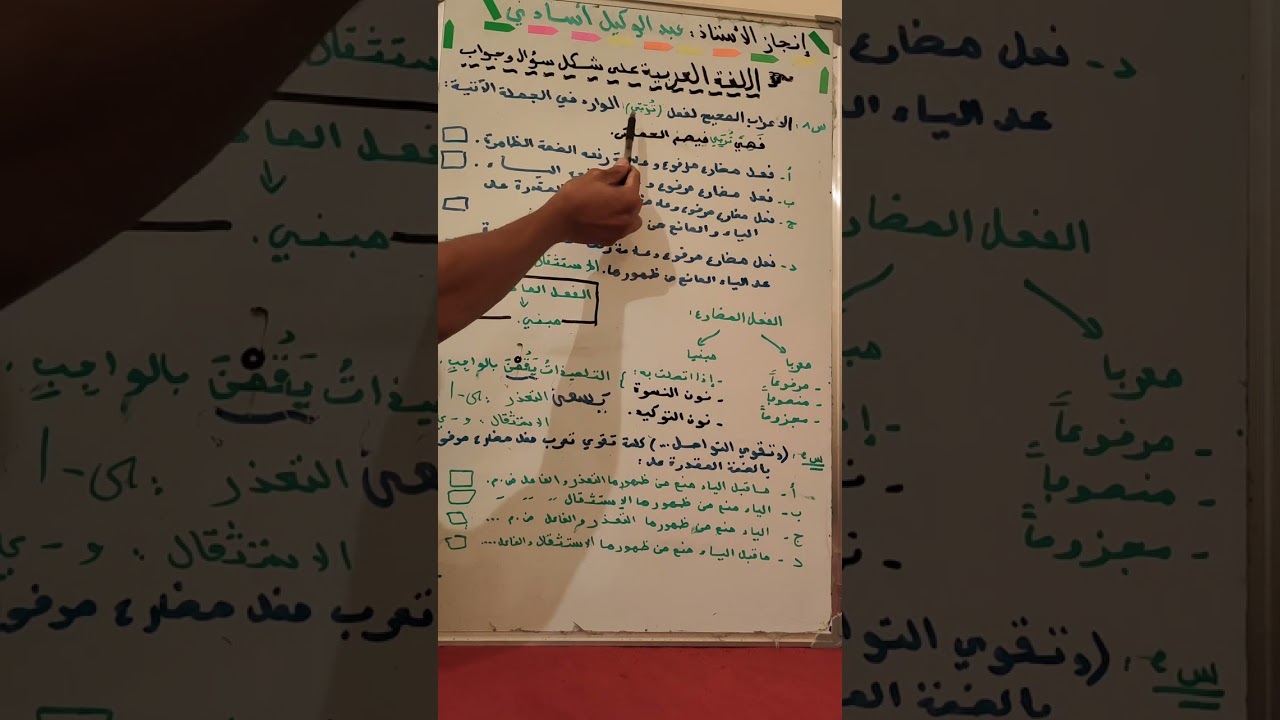 إنجاز الأستاذ: عبد الوكيل أساوني
اللغة العربية على شكل سؤال وجواب
س٨: الاعراب الصحيح لفعل (تُرَبِّي) الوارد في الجملة الآتية:
فَهِيَ تُرَبِّي فيهم
أ- فعل مضارع مرفوع و رفعه الضمة الظاهرة.
ب- فعل مضارع مرفوع و الياء.
ج- فعل مضارع مرفوع وعلامة المقدرة على
الياء و المانع من
د- فعل مضارع مرفوع و علامة
على الياء المانع من ظهورها. الاستثقال
الفعل
مبني.
الفعل المضارع:
معربا
- مرفوعاً
- منصوباً
- مجزوماً
مبنيا
- إذا اتصلت به:
- نون النسوة
- نون التوكيد.
التلميذاتُ يَقُمْنَ بالواجبِ.
يسعى التعذر: ى-ا
الاستثقال: و-ي
س٩: (وتقوي التواصل...) كلمة تقوي تعرب فعل مضارع
بالضمة المقدرة على:
أ- ماقبل الياء منع من ظهورها التعذر و الفاعل ض.م.
ب- الياء منع من ظهورها الاستثقال " " "
ج- الياء منع من ظهورها التعذر والفاعل ض.م ...
د- ماقبل الياء منع من ظهورها الاستثقال والفاعل...